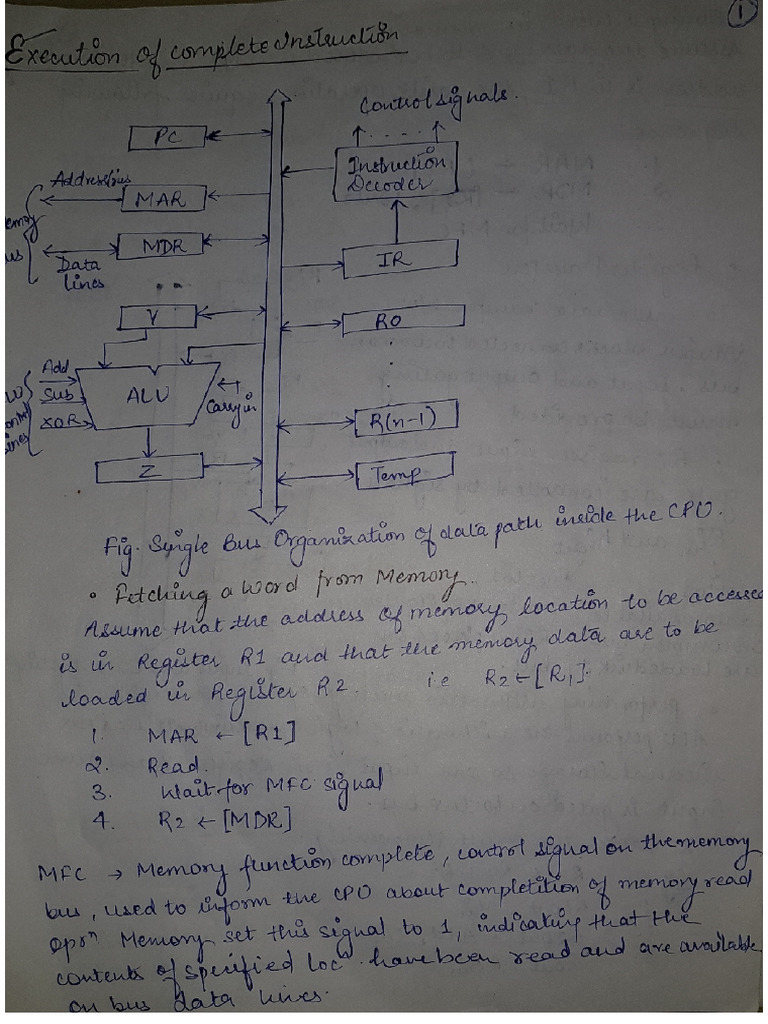 1
Execution of complete Instruction
Control signals.
PC
Instruction
Decoder
Address bus
MAR
MDR
IR
Data
lines
Y
R0
Add
Sub
XOR
ALU
Carry in
R(n-1)
Z
Temp
Fig. Single Bus Organization of data path inside the CPU.
• Fetching a word from Memory.
Assume that the address of memory location to be accessed
is in Register R1 and that the memory data are to be
loaded in Register R2. i.e R2 ← [R1].
1. MAR ← [R1]
2. Read.
3. Wait for MFC signal
4. R2 ← [MDR]
MFC → Memory function complete, control signal on the memory
bus, used to inform the CPU about completition of memory read
oprⁿ Memory set this signal to 1, indicating that the
contents of specified locⁿ have been read and are available
on bus data lines.